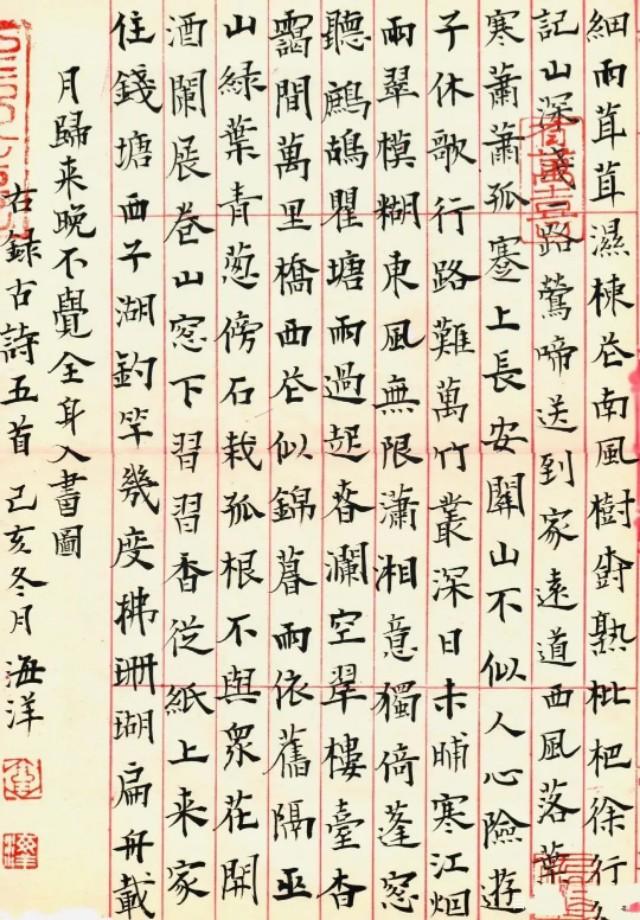 細雨茸茸濕楝花南風樹樹熟枇杷徐行
記山深淺一路鶯啼送到家遠道西風落葉
寒蕭蕭孤蹇上長安關山不似人心險遊
子休歌行路難萬竹叢深日未晡寒江烟
雨翠模糊東風無限瀟湘意獨倚蓬窓
聽鷓鴣瞿塘雨過起春瀾空翠樓臺杳
靄間萬里橋西花似錦暮雨依舊隔巫
山綠葉青葱傍石栽孤根不與衆花開
酒闌展卷山窓下習習香從紙上来家
住錢塘西子湖釣竿幾度拂珊瑚扁舟載
月歸来晚不覺全身入畫圖
右録古詩五首 己亥冬月 海洋